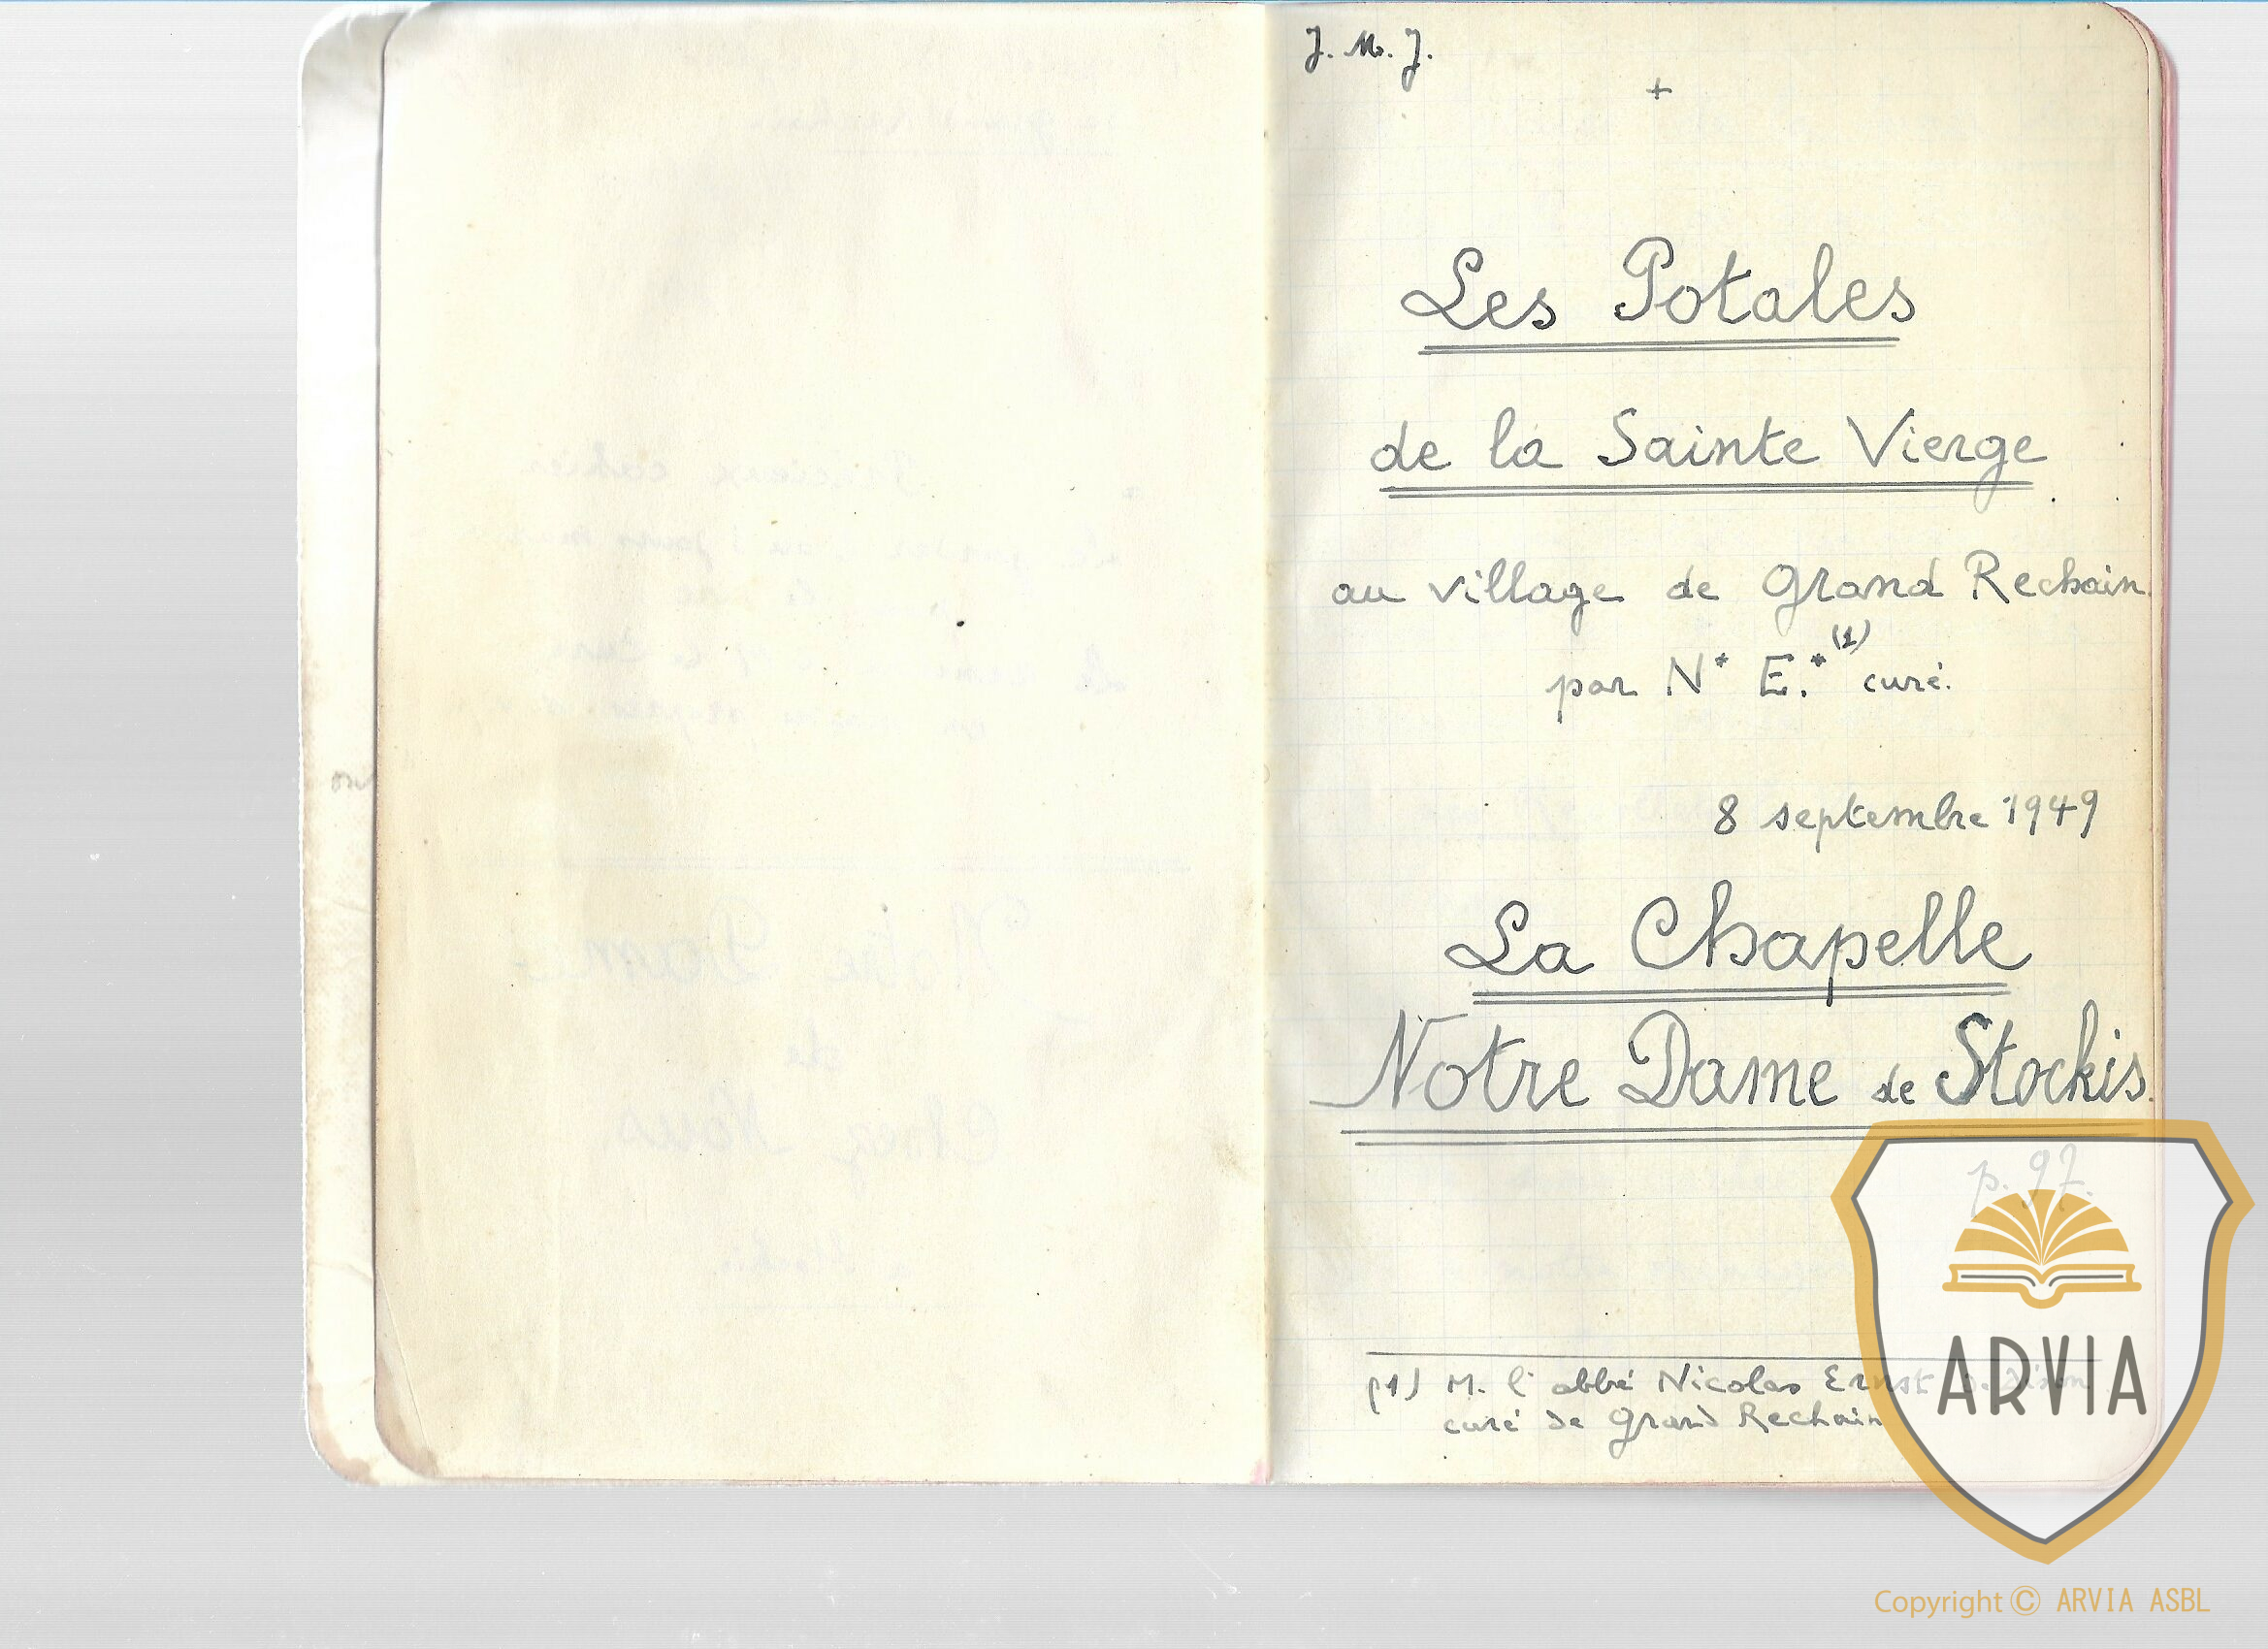 J. M. J.
+
Les Potales
de la Sainte Vierge
au village de Grand Rechain.
par N* E.* (1) curé.
8 septembre 1949
La Chapelle
Notre Dame de Stockis.
p. 97.
(1) M. l'abbé Nicolas Ernst de Dison
curé de Grand Rechain
ARVIA
Copyright © ARVIA ASBL